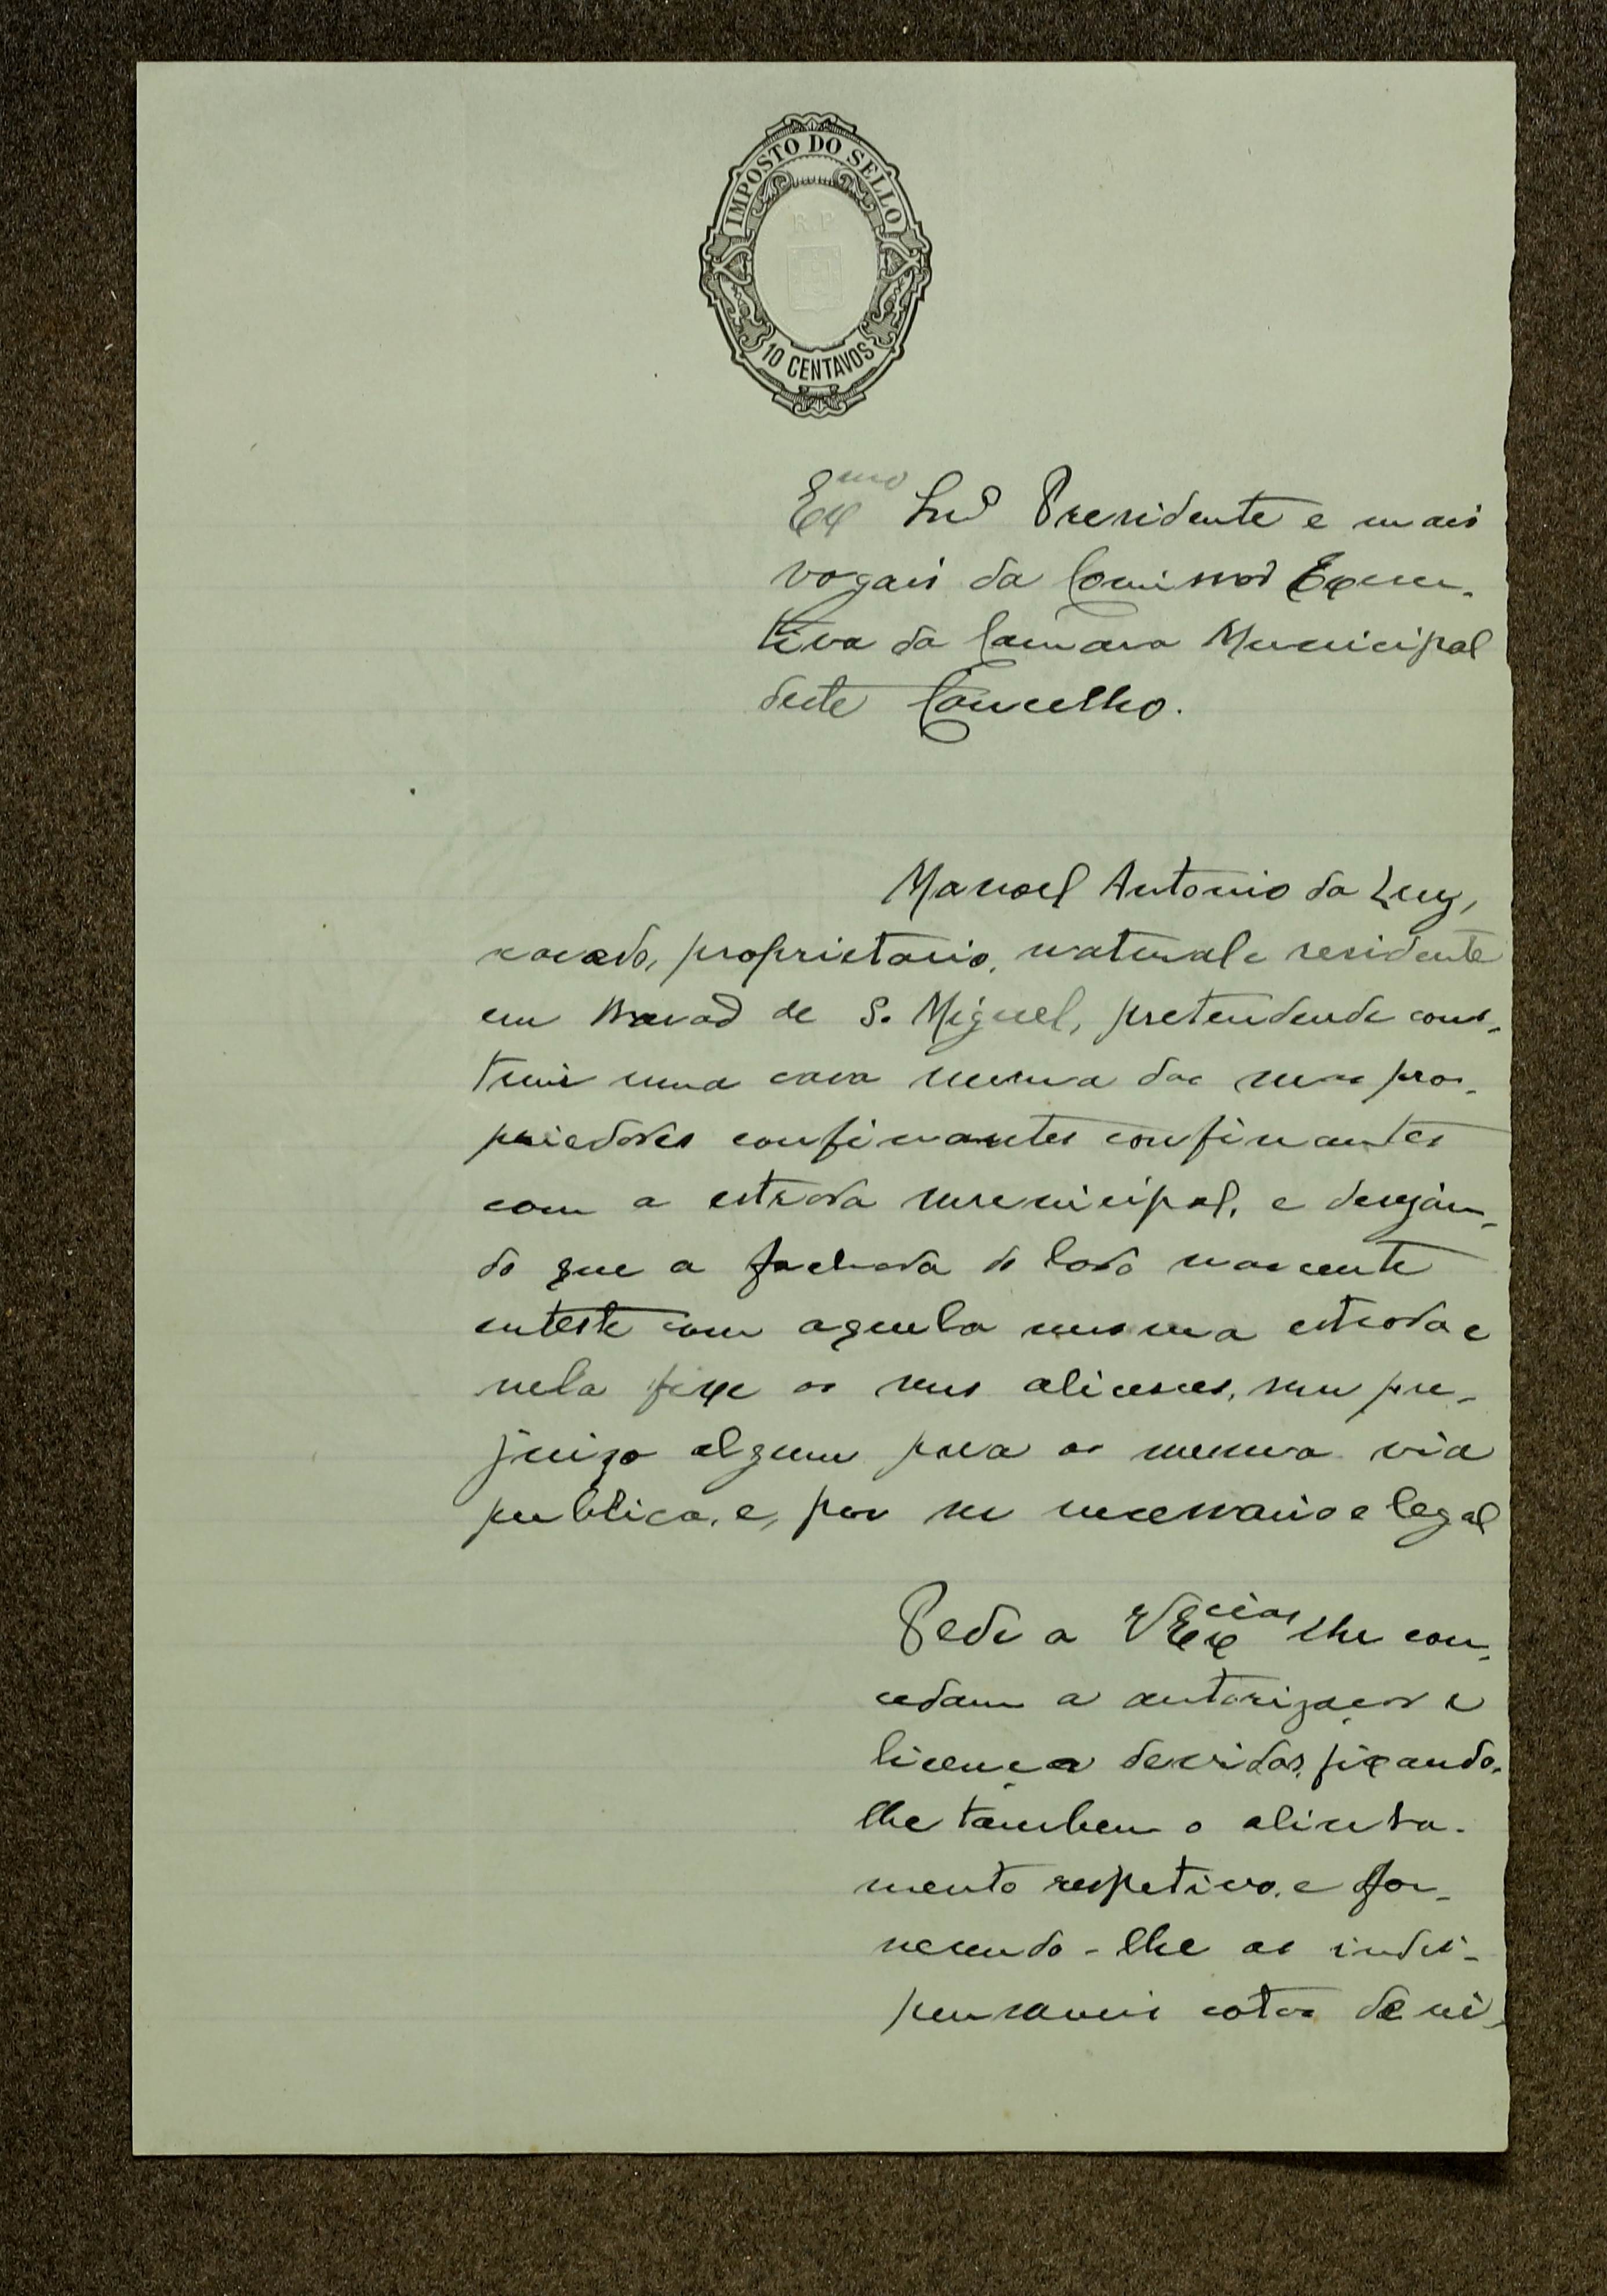 IMPOSTO DO SELLO
R P
10 CENTAVOS
Exmo Snr Presidente e mais
vogais da Comissão Execu-
tiva da Camara Municipal
deste Concelho.
Manoel Antonio da Luz,
casado, proprietario, natural e residente
em de S. Miguel, pretendende cons-
truir uma casa numa das suas pro-
priedades confinantes confinantes
com a estrada municipal, e desejan-
do que a fachada do lado nascente
enteste com aquela mesma estrada e
nela fixe os seus alicerces, sem pre-
juizo algum para a mesma via
publica, e, por ser necessario e legal
Pede a VExcias lhe con-
cedam a autorização e
licença devidas, fixando-
lhe tambem o alinha-
mento respetivo, e for-
necendo-lhe as indis-
pensaveis cotas de ni-